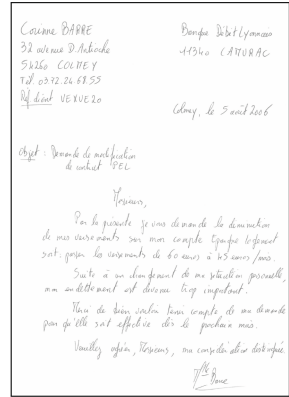 Corinne BARRE
32 avenue D. Antioche
54260 COLMEY
Tél. 03.72.24.68.55
Ref client VEXVE20
Banque Débit Lyonnais
11340 CAMURAC
Colmey, le 5 août 2006
Objet : Demande de modification
de contrat PEL
Messieurs,
Par la présente je vous demande la diminution
de mes versements sur mon compte Epargne logement
soit : passer les versements de 60 euros à 45 euros / mois.
Suite à un changement de ma situation personnelle,
mon endettement est devenu trop important.
Merci de bien vouloir tenir compte de ma demande
pour qu'elle soit effective dès le prochain mois.
Veuillez agréer, Messieurs, ma considération distinguée.
Barre